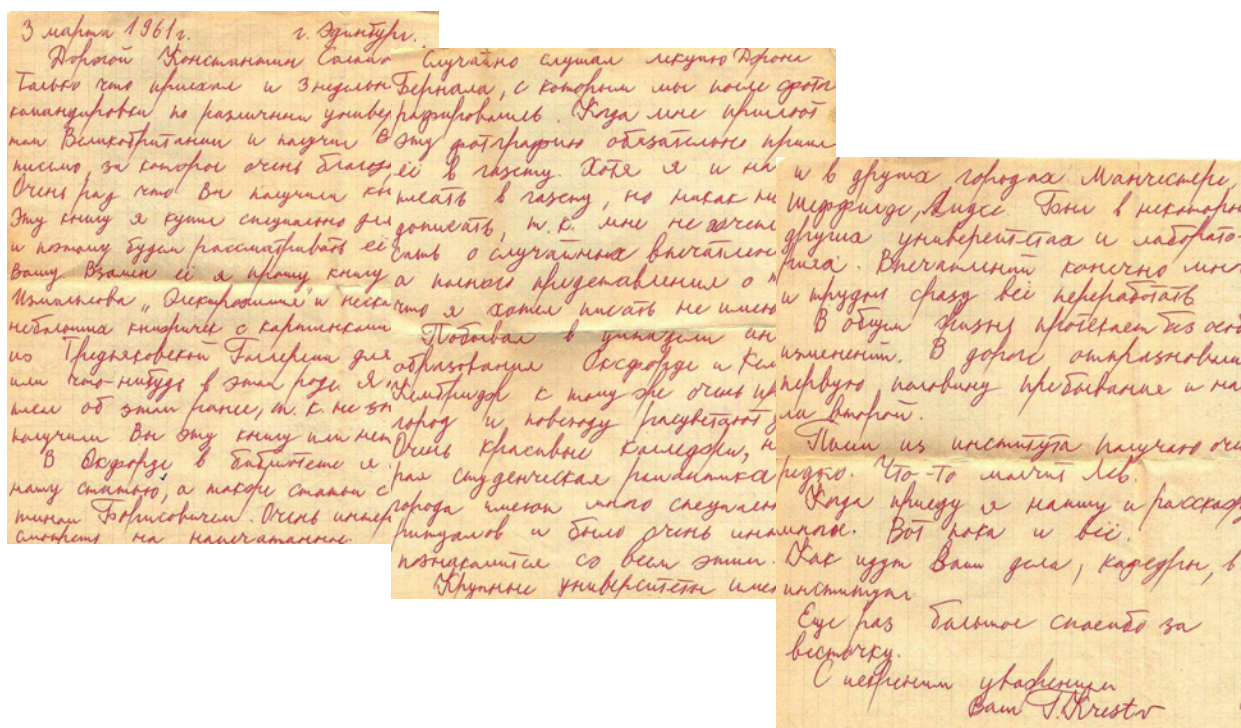 3 марта 1961г. г. Эдинбург.
Дорогой Константин
Только что приехал и 3 недельн
командировки по различным универ
там Великобритании и получил В
письмо, за которое очень благод
Очень рад что Вы получили кн
Эту книгу я купил специально дл
и поэтому будем рассматривать её
Вашу. Взамен её я прошу книгу
Измаилова „ и неск
небольших книжечек с картинками
из Третьяковской Галлереи для
или что-нибудь в этом роде. Я
об этом ранее, т.к. не зн
получили Вы эту книгу или нет
В Оксфорде в библиотеке я
нашу статью, а также статьи с
Борисовичем. Очень интер
смотреть на напечатанное.
Случайно слушал лекцию Джона
Бернала, с которым мы после фотог
рафировались. Когда мне пришлют
эту фотграфию обязательно пришл
её в газету. Хотя я и на
писать в газету, но никак не
дописать, т.к. мне не хочет
сать о случайных впечатлен
а полного представления о
что я хотел писать не имею
Побывал в цитадели ан
образования Оксфорде и Кем
Кембридж к тому же очень
город и повсюду расцветают
Очень красивые колледжи,
рая студенческая романтика
города имеют много специален
ритуалов и было очень ин
познакомится со всем этим.
Крупные университеты име
и в других городах Манчестере,
Шеффилде, Лидсе. Был в некотор
других университетах и лаборато-
риях. Впечатлений конечно мн
и трудно сразу всё переработать
В общем жизнь протекает без особ
изменений. В дороге отпраздновали
первую половину пребывания и на
ла второй.
Писем из института получаю оче
редко. Что-то молчит Лев.
Когда приеду я напишу и расскаж
многое. Вот пока и всё.
Как идут Ваши дела, кафедры, в
институт
Еще раз большое спасибо за
весточку.
С искренним уважением
Ваш